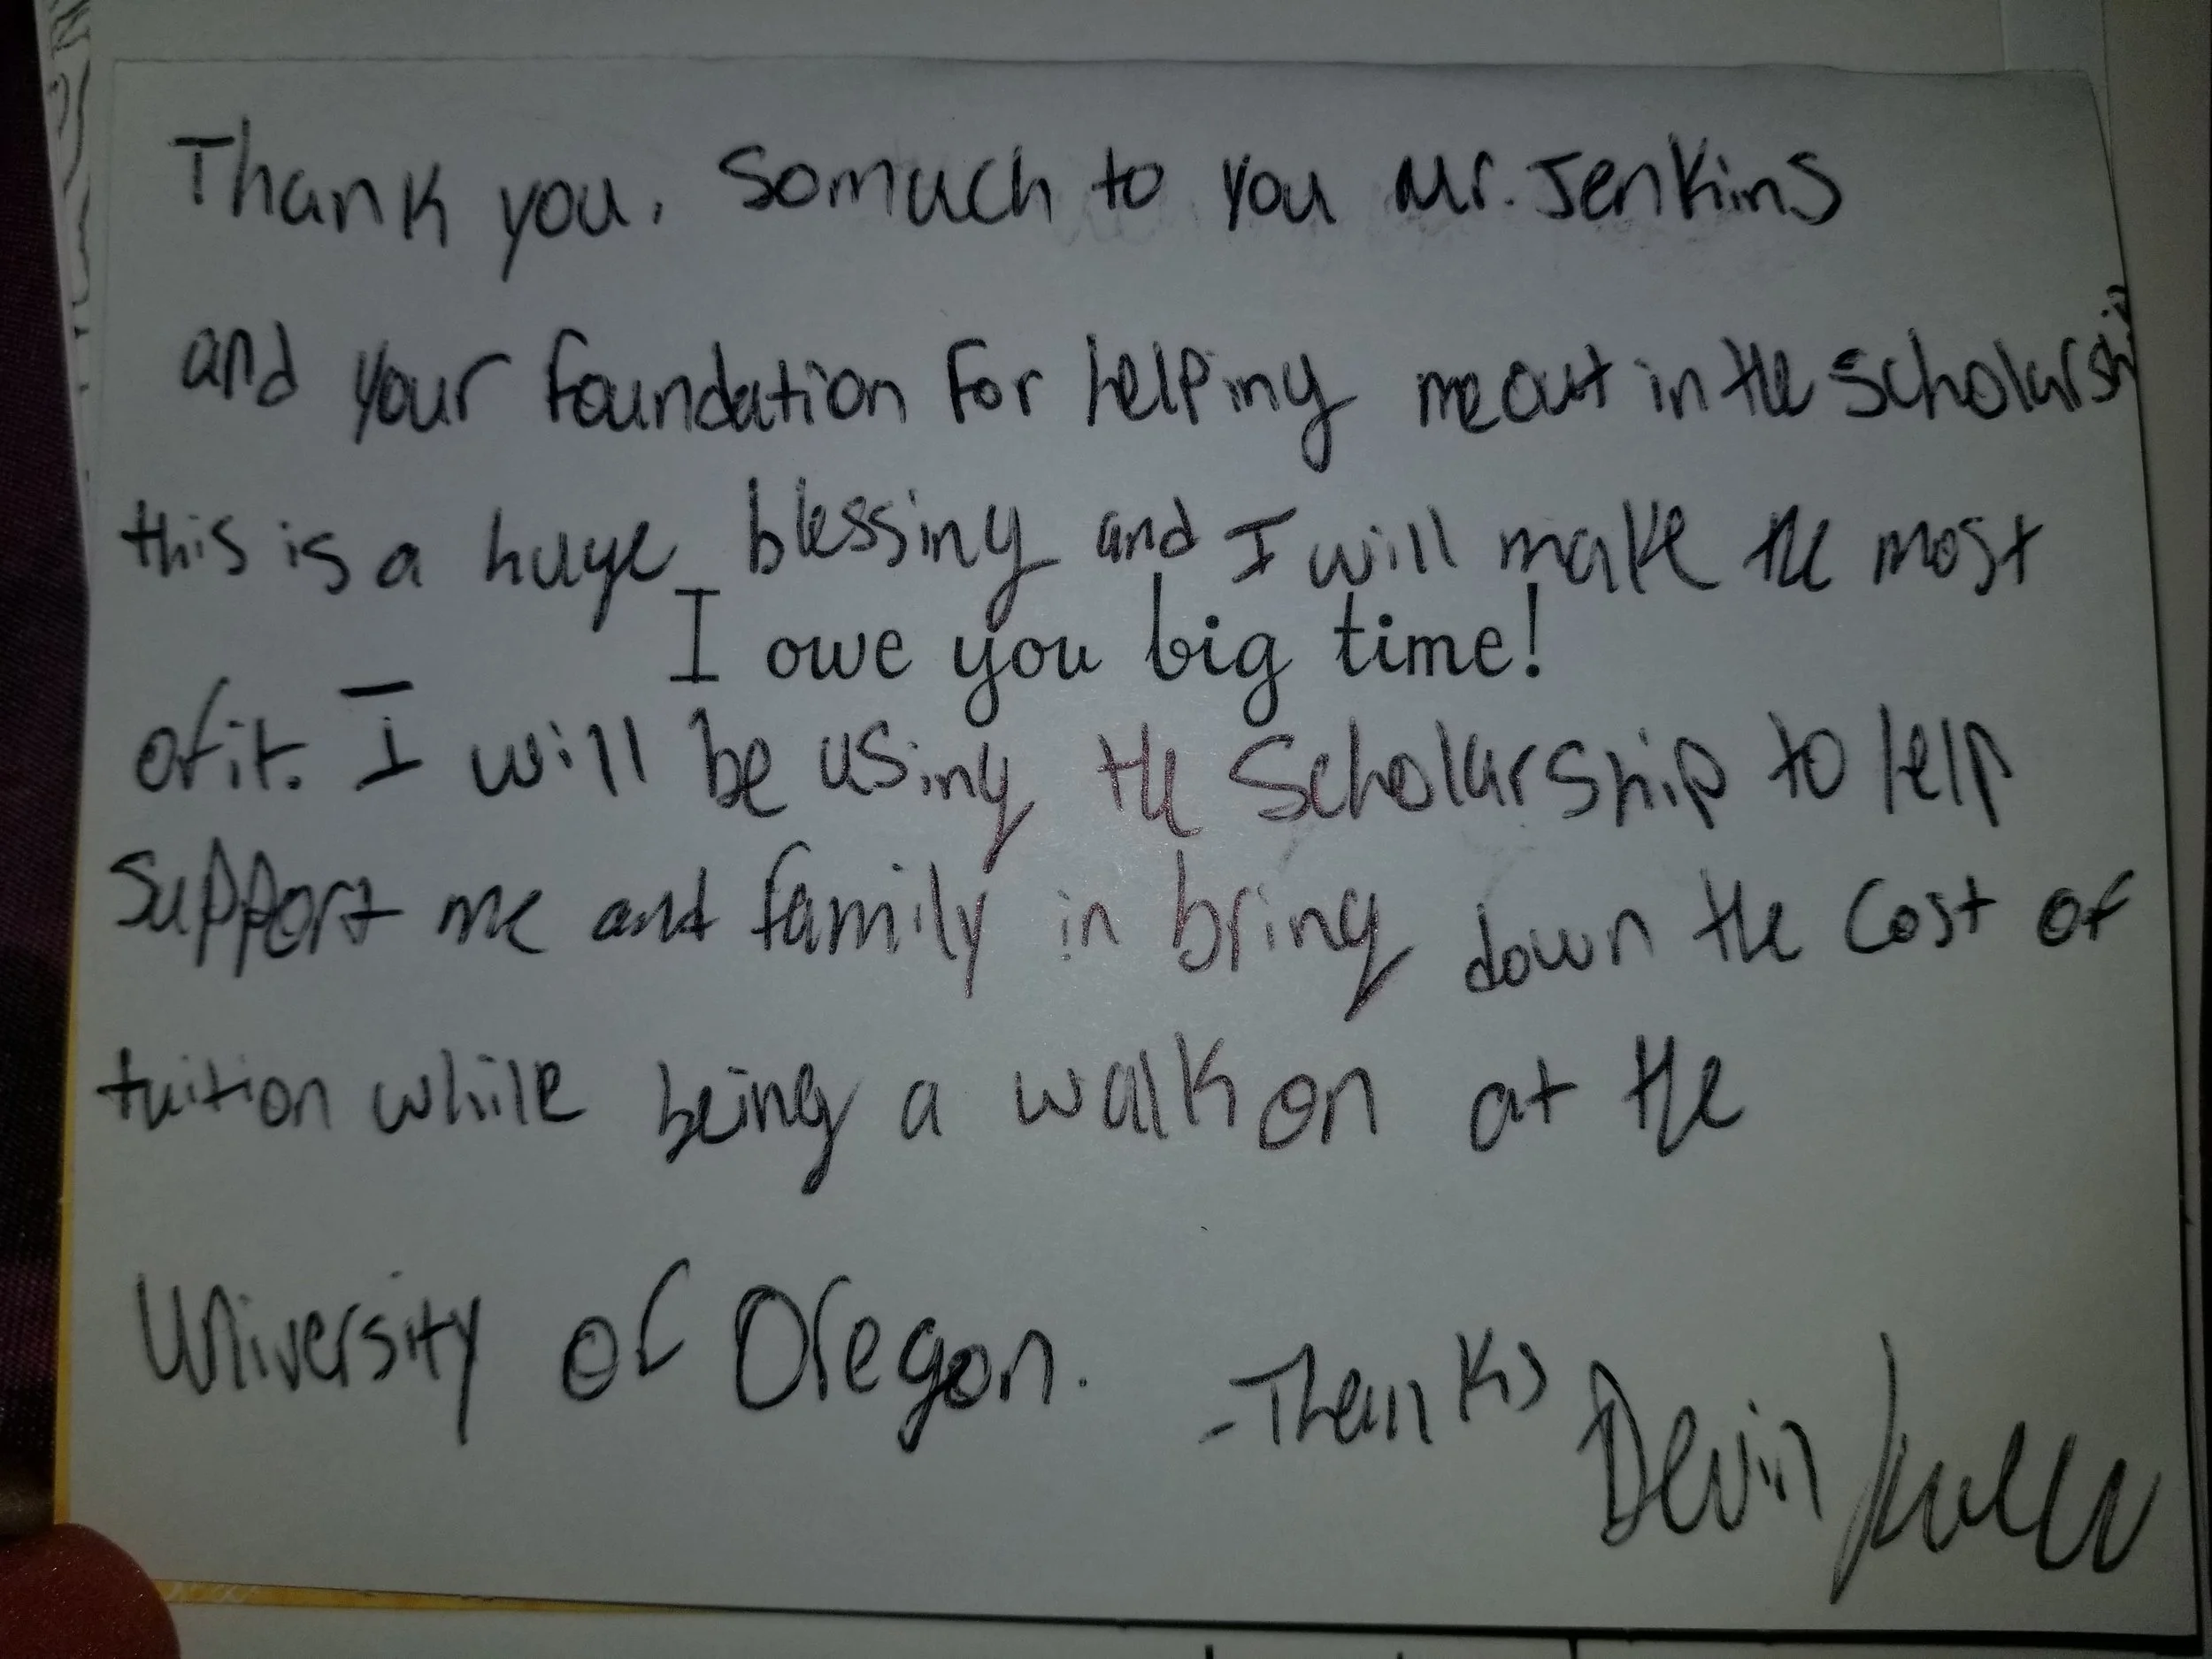 Thank you, Somuch to you Mr. Jenkins
and your foundation For helping me out in the scholarship
this is a huge blessing and I will make the most
I owe you big time!
of it. I will be using the Scholarship to help
Support me and family in bring down the Cost of
tuition while being a walk on at the
University of Oregon. -Thanks
Devin